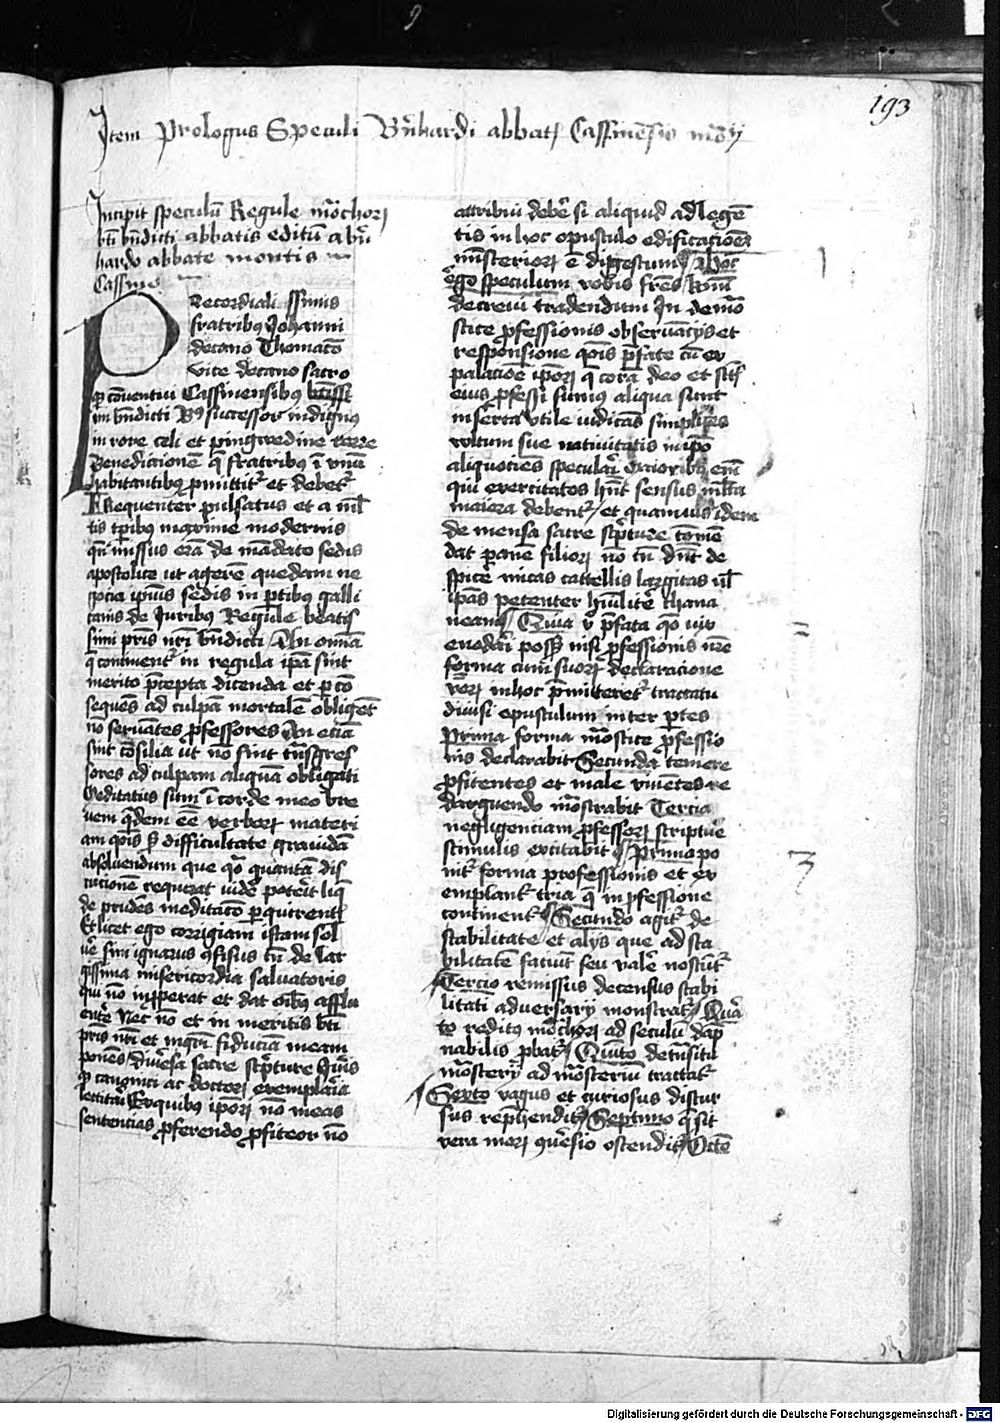 193
Item Prologus Speculi Bernhardi abbatis Cassinensis
Incipit speculum Regule monachorum
beati benedicti abbatis editum a bern
hardo abbate montis
Cassine
Precordialissimis
fratribus Johanni
decano Thomaco
vite decano sacro
que conventui Cassinensibus beatissi
mi benedicti successor indignus
in rore celi et pingwedine terre
Benedictionem que fratribus in unum
habitantibus promittitur et debetur
Frequenter pulsatus et a mul
tis temporibus maxime modernis
quando missus eram de mandato sedis
apostolice ut agerem quedam ne
gocia ipsius sedis in partibus galli
canis de Juribus Regule beatis
simi patris nostri benedicti An omnia
que continentur in regula ipsa sint
merito precepta dicenda et per con
sequens ad culpam mortalem obligent
non servantes professores An etiam
sint consilia ut non sint transgres
sores ad culpam aliquam obligati
Meditatus sum in corde meo bre
vem quidem esse verborum materi
am questionis sed difficultate gravidam
absolvendum que quam quantam dis
cucionem requirat videre poterit liqui
de prudens meditacione perquirentis
Et licet ego corrigiam istam sol
vere sim ignarus confisus tamen de lar
gissima misericordia salvatoris
qui non improperat et dat omnibus afflu
enter Nec non et in meritis beati
patris nostri et magistri fiduciam meam
ponens diversa sacre scripture Juris
que canonici ac doctorum exemplaria
lectitavi Ex quibus ipsorum non meas
sentencias proferendo profiteor non
attribui debere si aliquid ad legen
tis in hoc opusculo edificationem
ministeriorum est digestum Hoc
ergo speculum vobis fratres karissimi
decrevi tradendum In de mona
stice professionis observanciis et
responsione questionis prefate cum ex
palacione ipsorum que coram deo et sanctis
eius professi sumus aliqua sunt
inserta utile iudicans simplices
vultum sue nativitatis in ipso
aliquociens speculari Maioribus enim
qui exercitatos habent sensus multa
maiora debentur et quamvis idem
de mensa sacre scripture comme
dat panem filiorum non tamen dum de
spicere micas catellis largitas vel
ipsas petenter humiliter chana
neam Quia vero prefata questio
enodari posset nisi professionis nostre
forma cum suorum declaracione
verborum in hoc premitteretur tractatu
divisi opusculum in ter partes
Prima forma monastice professio
nis declarabit Secunda temere
profitentes et male viventes re
darguendo monstrabit Tercia
negligenciam professorum scripture
stimulis excitabit Primo po
nitur forma professionis et ex
emplantur tria que in professione
continentur Secundo agitur de
stabilitate et aliis que ad sta
bilitatem faciunt seu valere noscuntur
Tercio remissius decensus stabi
litati adversarii monstratur Quar
to reditio monachorum ad seculum damp
nabilis probatur Quinto de transitu
monasterii ad monasterium tractatur
Sexto vagus et curiosus discur
sus reprehenditur Septimo que sit
vera morum conversio ostenditur Octa
Digitalisierung gefördert durch die Deutsche Forschungsgemeinschaft - DFG